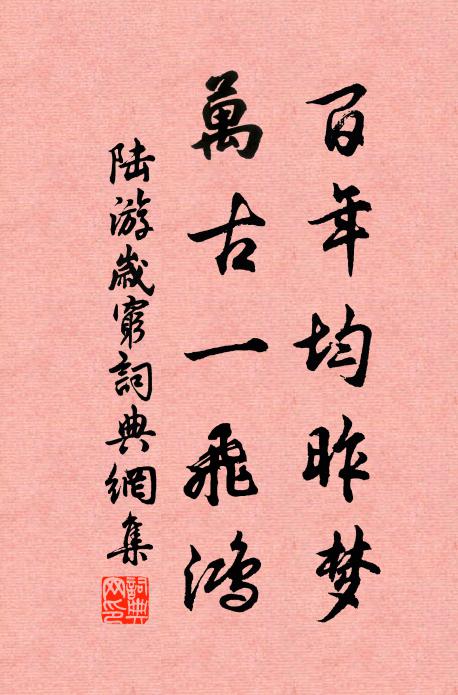 百年均昨梦
萬古一飛鴻
陸游歲窮詞典網集
詞典网印